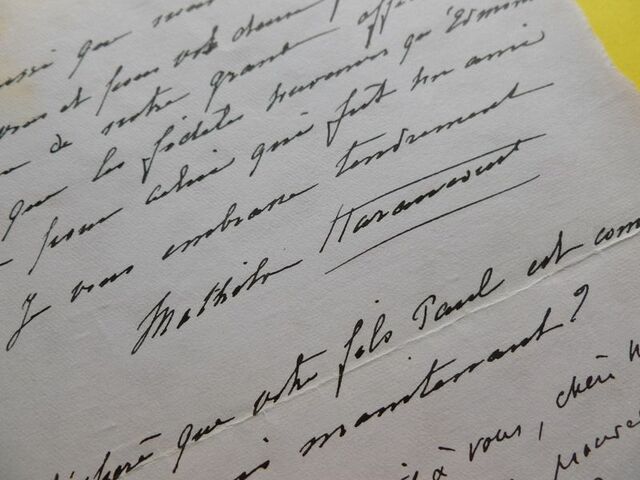 que
et pour votre
de notre grande
que les fidèles souvenirs qu'Edmon
pour celui qui fut son ami
Je vous embrasse tendrement
Mathilde Haraucourt
que votre fils Paul est com
maintenant ?
à vous, chère